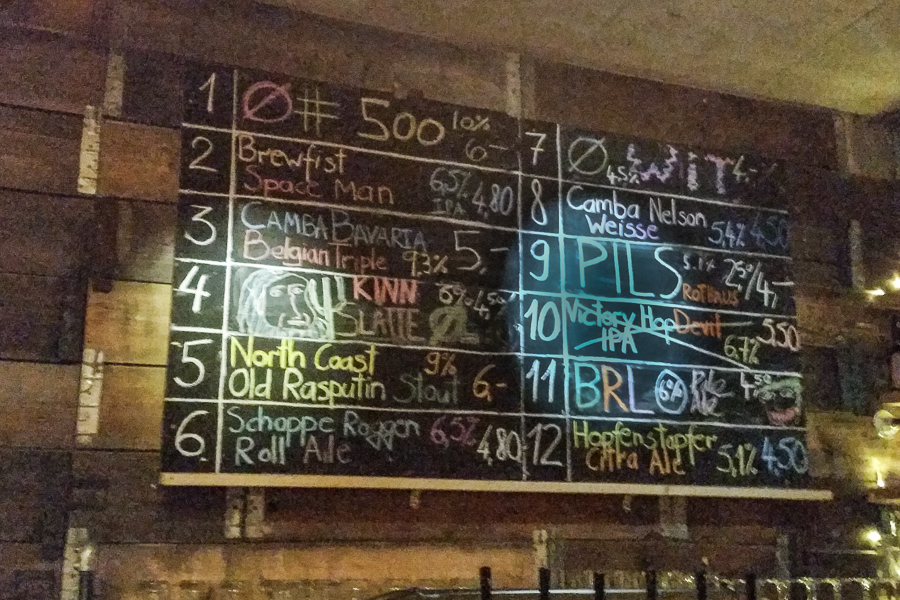 1 Ø # 500 10% 6–
2 Brewfist
Space Man 6,5% IPA 4,80
3 CAMBA BAVARIA
Belgian Triple 9,3% 5,–
4 KINN 6% 4,50
SLATTE ØL
5 North Coast 9%
Old Rasputin Stout 6,–
6 Schoppe Roggen 6,5%
Roll Ale 4,80
7 Ø 4,5% WiT 4,–
8 Camba Nelson
Weisse 5,4% 4,50
9 PILS 5.1% ROTHAUS 4,–
10 Victory Hop Devil 5,50
IPA 6,7%
11 BRLO 6% Pale Ale 4,50
12 Hopfenstopfer
Citra Ale 5,1% 4,50